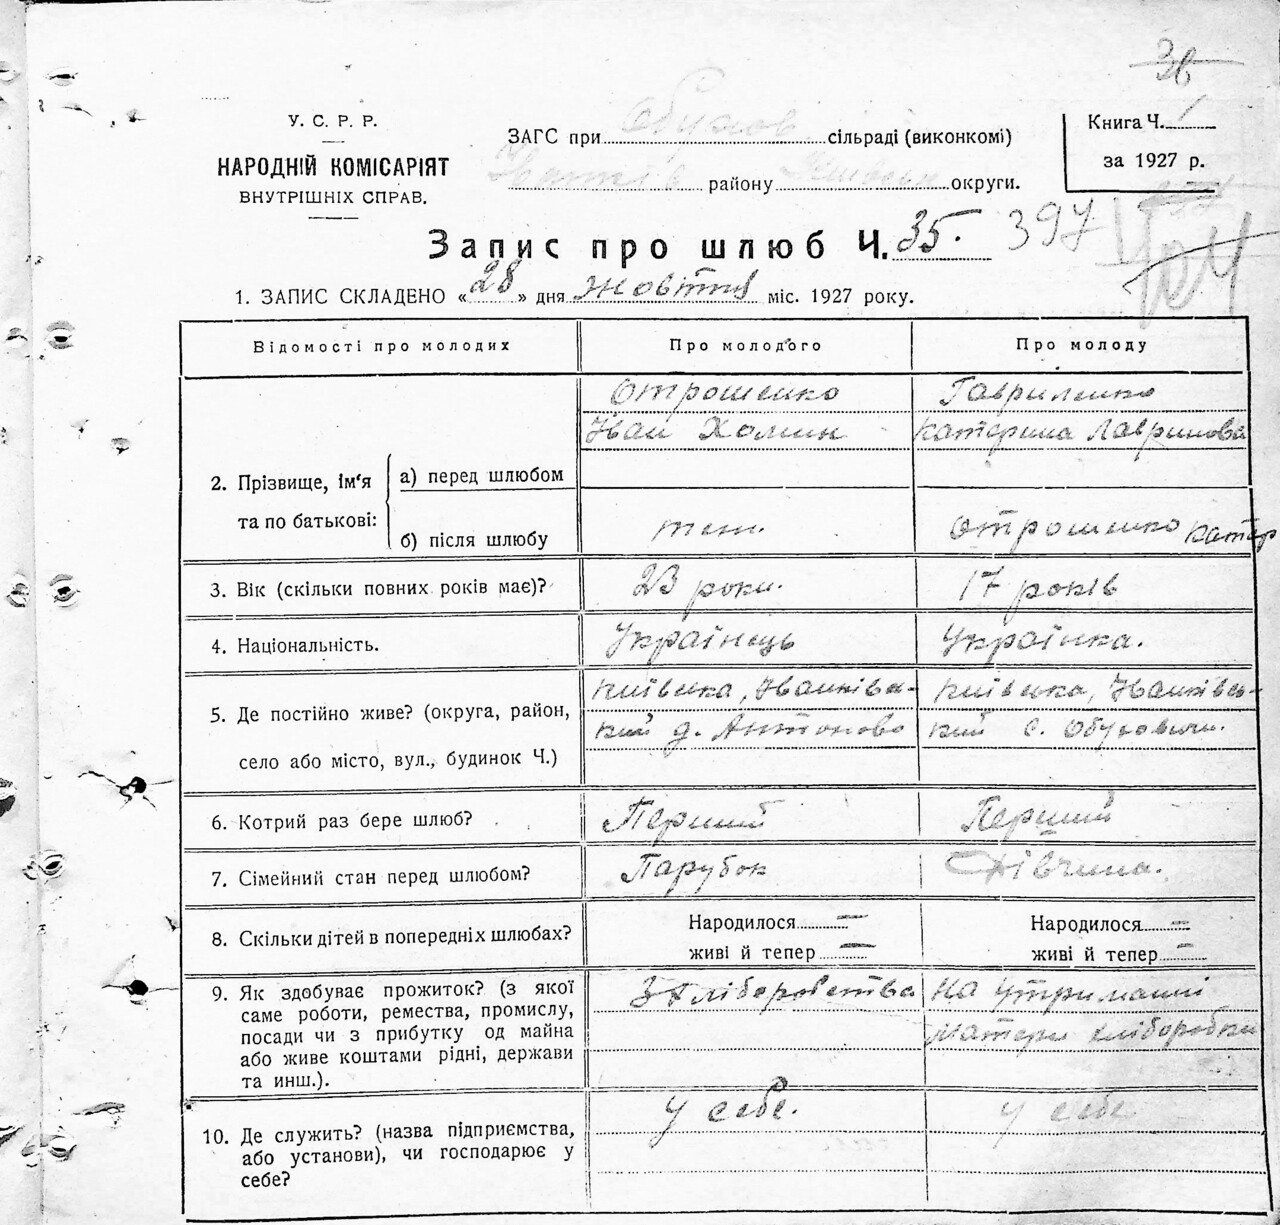 36
У. С. Р. Р.
НАРОДНІЙ КОМІСАРІЯТ
ВНУТРІШНІХ СПРАВ.
ЗАГС при Обухов сільраді (виконкомі)
Іванків району Київськ округи.
Книга Ч. 1
за 1927 р.
Запис про шлюб Ч. 35. 397
1. ЗАПИС СКЛАДЕНО «28» дня жовтня міс. 1927 року.
Відомості про молодих
Про молодого
Про молоду
2. Прізвище, ім'я та по батькові:
а) перед шлюбом
Отрошенко
Іван Хомин
Гавриленко
Катерина Лавринова
б) після шлюбу
теж.
Отрошенко Катер
3. Вік (скільки повних років має)?
23 роки.
17 років
4. Національність.
Українець
Українка.
5. Де постійно живе? (округа, район,
село або місто, вул., будинок Ч.)
Київська, Іванківсь-
кий д. Антоново
Київська, Іванківсь-
кий с. Обуховичи.
6. Котрий раз бере шлюб?
Перший
Перший
7. Сімейний стан перед шлюбом?
Парубок
Дівчина.
8. Скільки дітей в попередніх шлюбах?
Народилося =
живі й тепер =
Народилося =
живі й тепер =
9. Як здобуває прожиток? (з якої
саме роботи, ремества, промислу,
посади чи з прибутку од майна
або живе коштами рідні, держави
та инш.).
З хліборобства
на утриманні
матери хліборобки
10. Де служить? (назва підприємства,
або установи), чи господарює у
себе?
У себе.
У себе